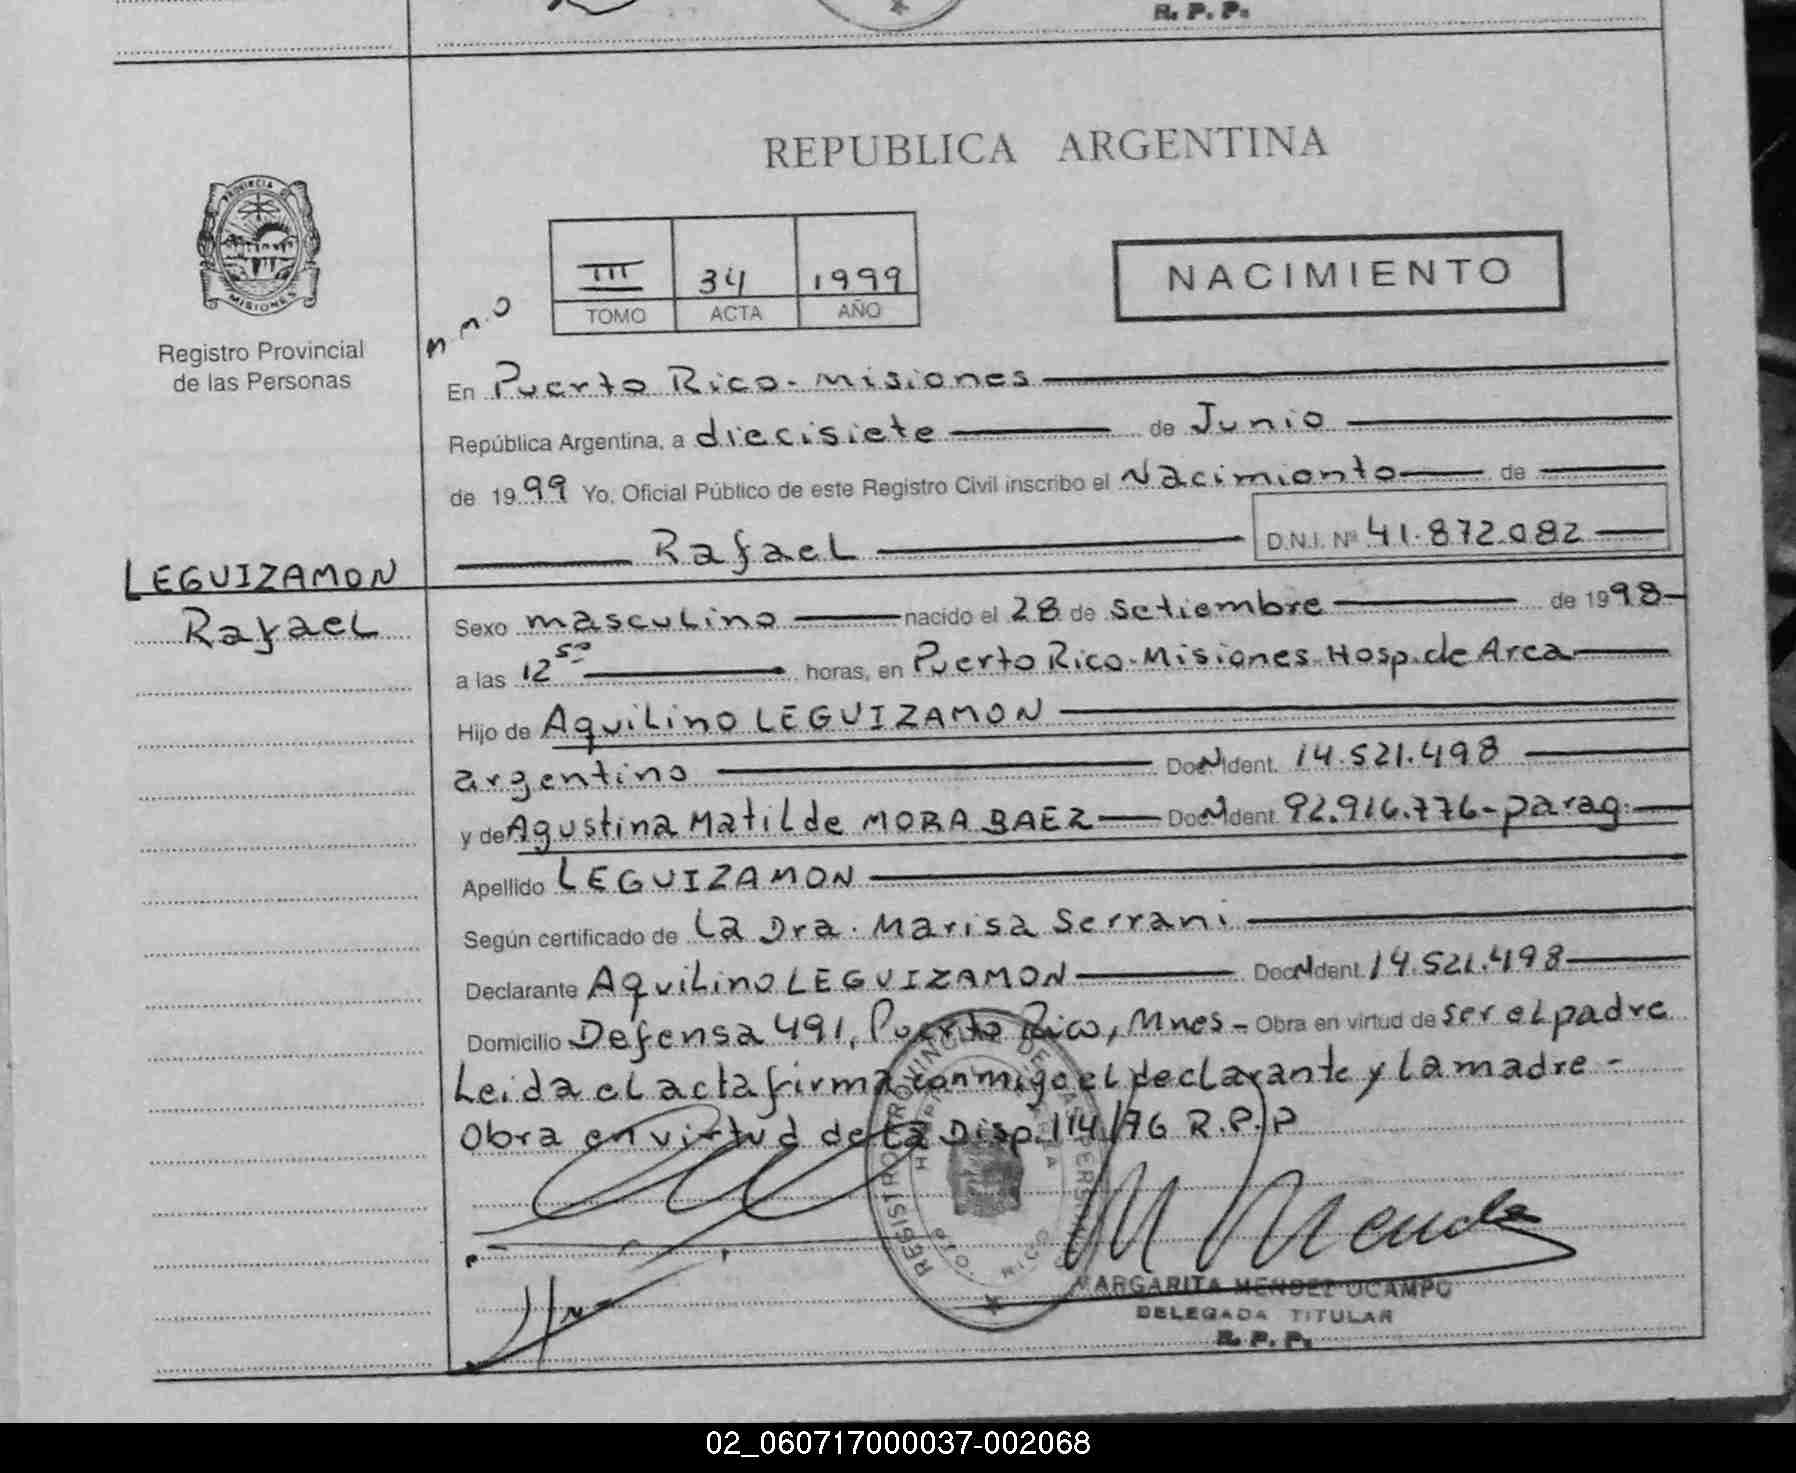 R. P. P.
REPUBLICA ARGENTINA
PROVINCIA DE
MISIONES
Registro Provincial
de las Personas
III 34 1999
TOMO ACTA AÑO
NACIMIENTO
n.m.o
En Puerto Rico - Misiones
República Argentina, a diecisiete de Junio
de 1999 Yo, Oficial Público de este Registro Civil inscribo el Nacimiento de
Rafael D.N.I. Nº 41.872.082
LEGUIZAMON
Rafael
Sexo masculino nacido el 28 de Setiembre de 1998
a las 12 50 horas, en Puerto Rico - Misiones Hosp. de Area
Hijo de Aquilino LEGUIZAMON
argentino Doc N Ident. 14.521.498
y de Agustina Matilde MORA BAEZ Doc N Ident. 92.916.776 - parag.
Apellido LEGUIZAMON
Según certificado de La Dra. Marisa Serrani
Declarante Aquilino LEGUIZAMON Doc N Ident. 14.521.498
Domicilio Defensa 491, Puerto Rico, Mnes - Obra en virtud de ser el padre
Leida el acta firma conmigo el declarante y la madre -
Obra en virtud de la Disp. 114/76 R.P.P
REGISTRO PROVINCIAL DE LAS PERSONAS
PTO. RICO
M Mendez
MARGARITA MENDEZ OCAMPO
DELEGADA TITULAR
R. P. P.
02_060717000037-002068